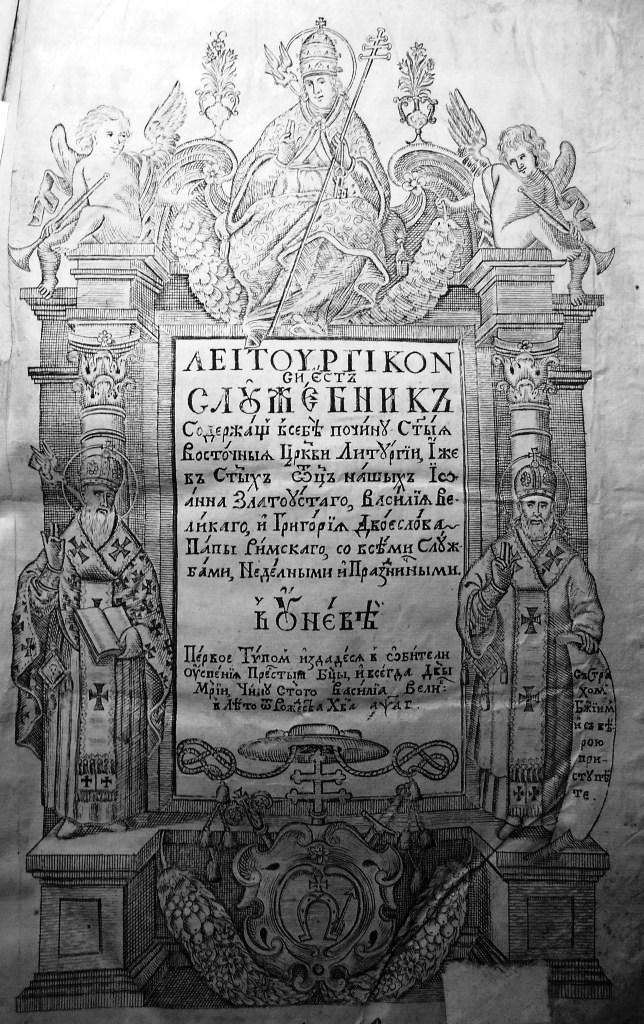 ΛΕΙΤΟΥΡΓΙΚΟΝ
СИ, ЕСТЬ
СЛꙊЖЕБНИКЪ
Содержащїй въ себѣ по чину Ст҃ы́ѧ
Восточныѧ Цр҃кви Литꙋргїи, Ꙗже
въ Ст҃ыхъ Ѿц҃ъ нашыхъ Їѡ-
анна Златоꙋстаго, Василїѧ Ве-
ликаго, и Григорїѧ Двоеслова
Папы Римскаго, со всѣми Слꙋж-
бами, Недѣлными и Праздничными.
В ОУНЕВѢ
Первое Тѵпом издадесѧ в Ѡбители
Оуспенїѧ Прест҃ыѧ Бц҃ы, и всегда Дв҃ы
Мр҃їи, Чинꙋ Ст҃ого Василїѧ Вели:
в Лѣто Ѿ Рожества Хв҃а
Съ Стра
хом
Бжїим
и съ вѣ
рою
при-
стꙋпѣ
те.